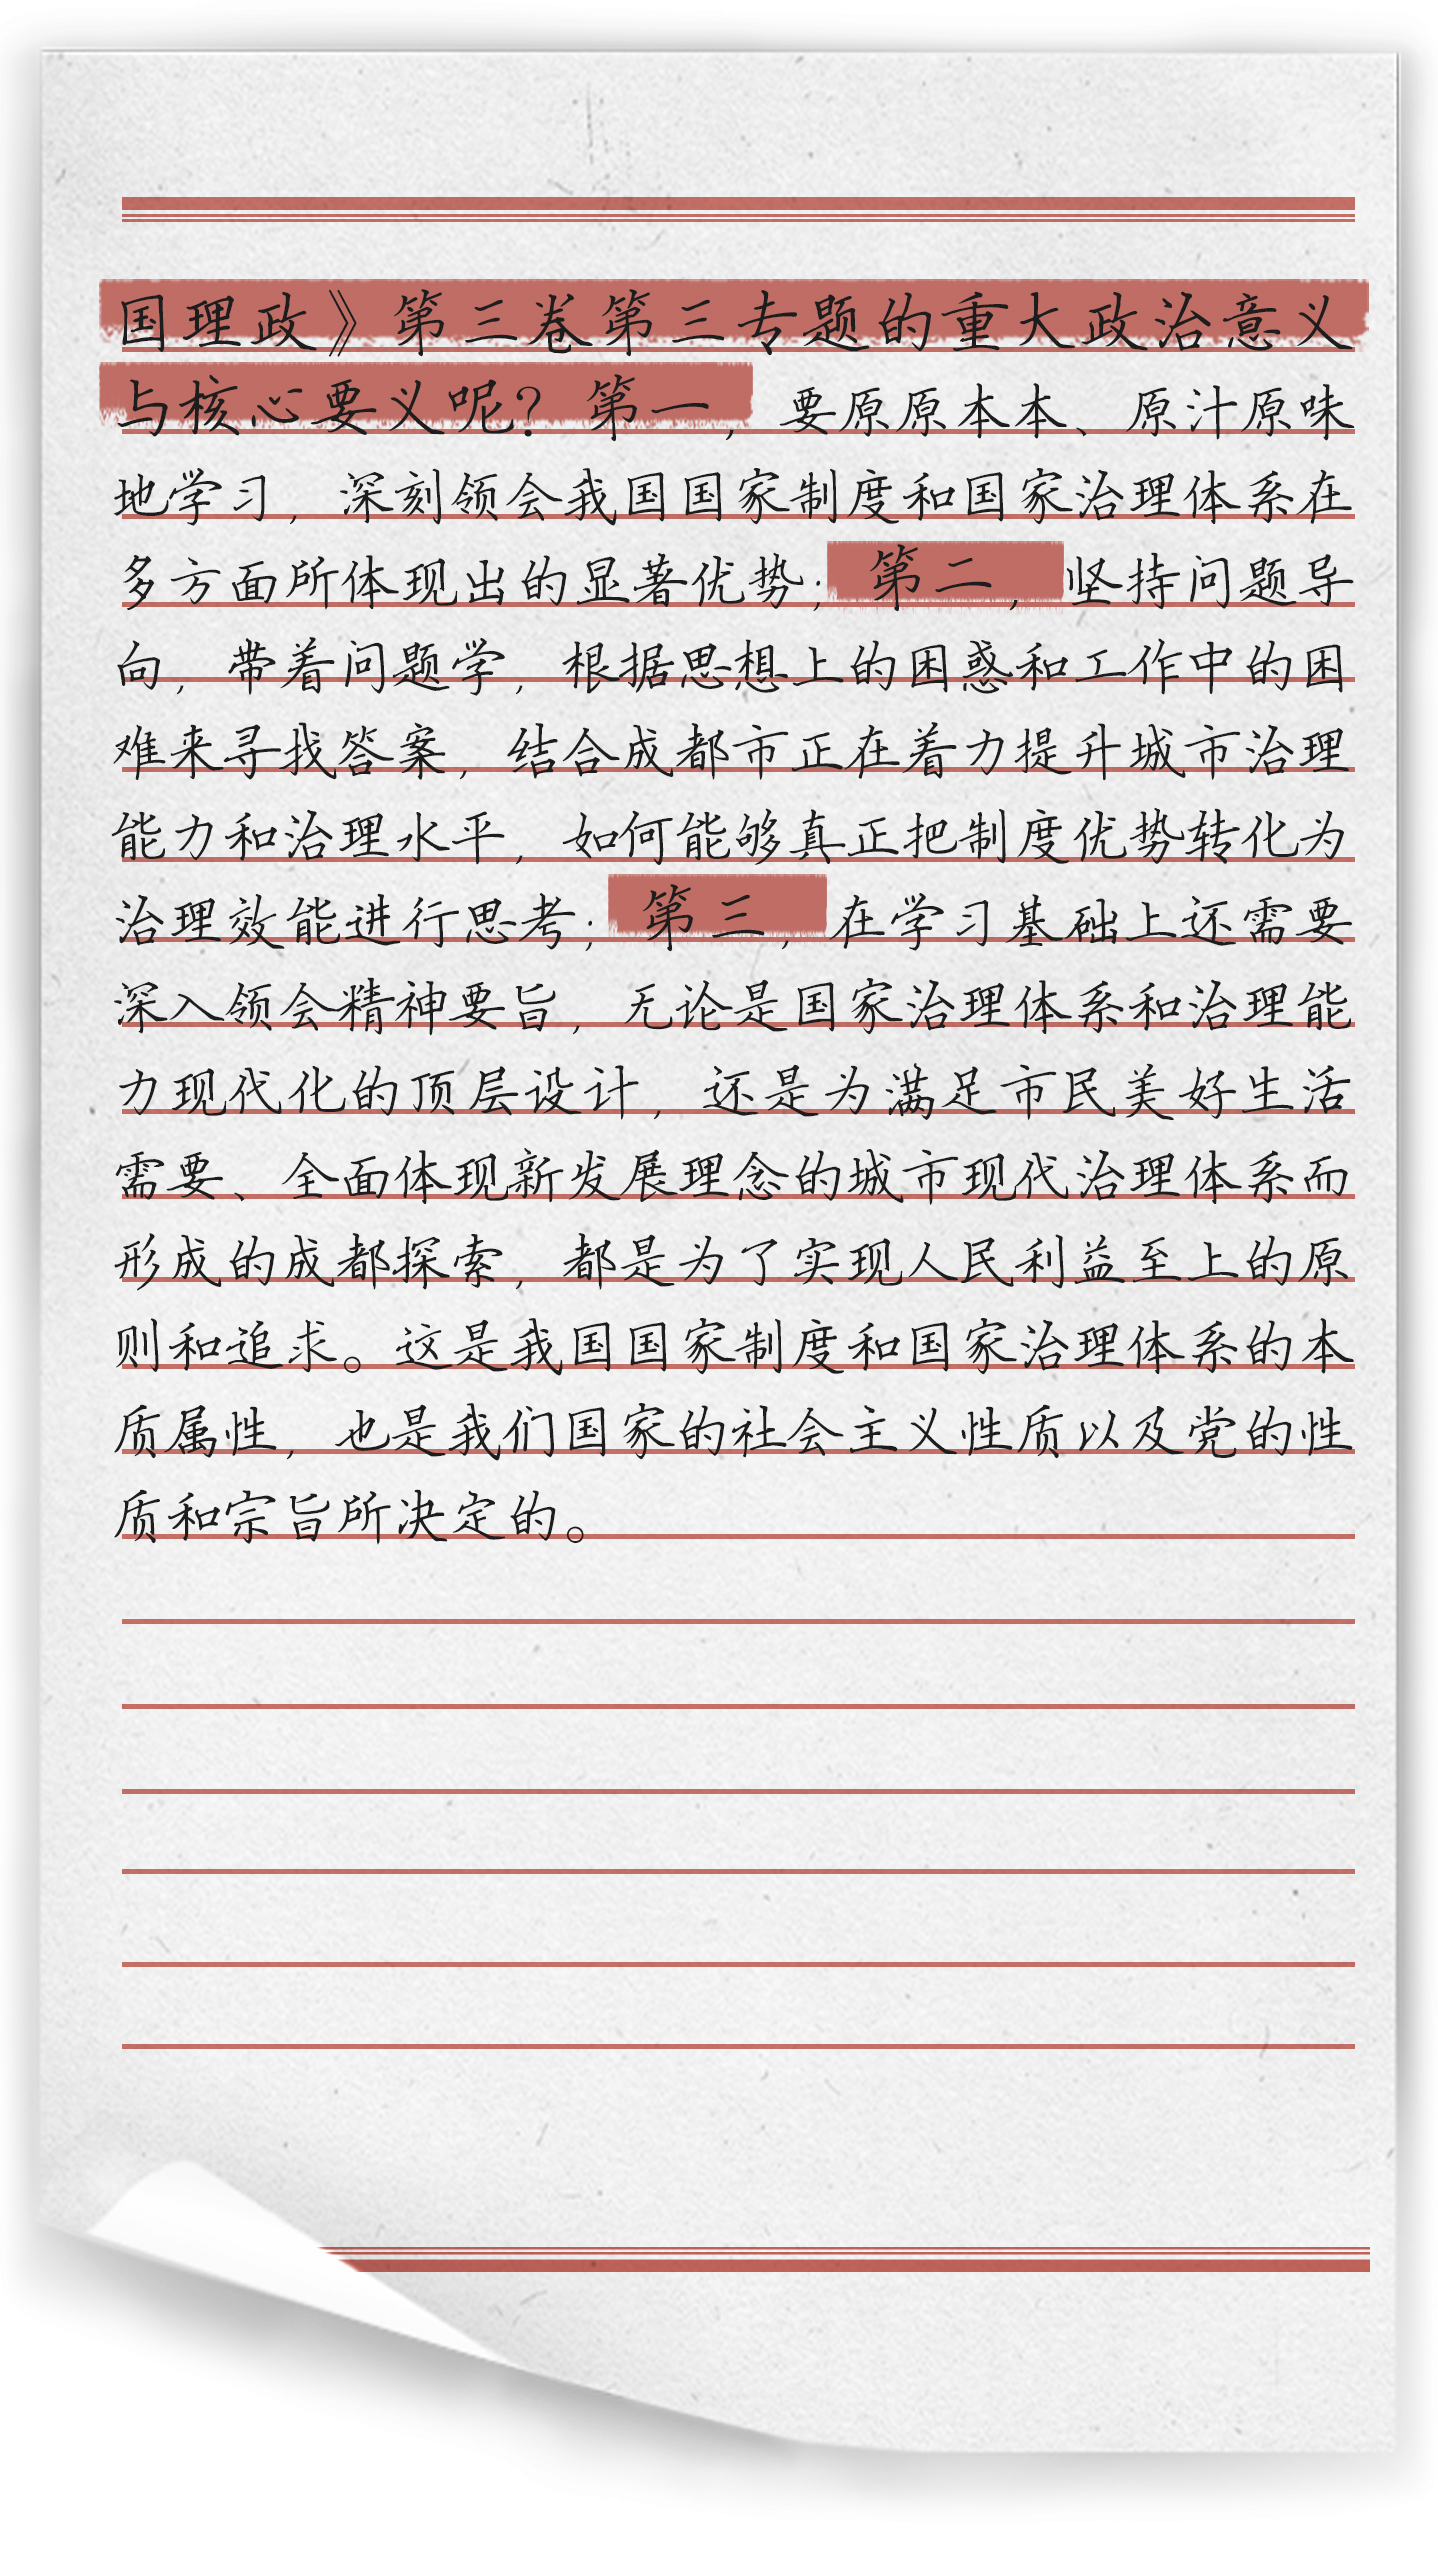 国理政》第三卷第三专题的重大政治意义
与核心要义呢？第一，要原原本本、原汁原味
地学习，深刻领会我国国家制度和国家治理体系在
多方面所体现出的显著优势；第二，坚持问题导
向，带着问题学，根据思想上的困惑和工作中的困
难来寻找答案，结合成都市正在着力提升城市治理
能力和治理水平，如何能够真正把制度优势转化为
治理效能进行思考；第三，在学习基础上还需要
深入领会精神要旨，无论是国家治理体系和治理能
力现代化的顶层设计，还是为满足市民美好生活
需要、全面体现新发展理念的城市现代治理体系而
形成的成都探索，都是为了实现人民利益至上的原
则和追求。这是我国国家制度和国家治理体系的本
质属性，也是我们国家的社会主义性质以及党的性
质和宗旨所决定的。